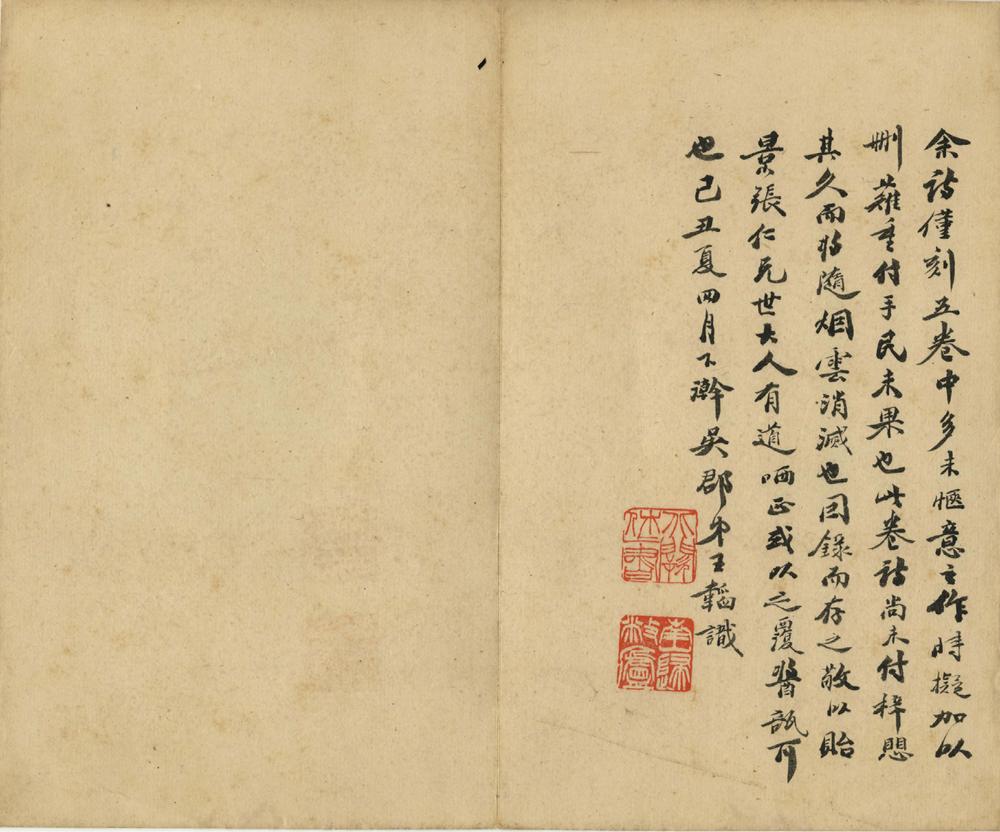 余詩僅刻五卷中多未愜意之作時擬加以
刪薙重付手民未果也此卷詩尚未付梓思
其久而將隨烟雲消滅也因錄而存之敬以貽
景張仁兄世大人有道哂正或以之覆醬瓿可
也己丑夏四月下澣吳郡弟王韜識